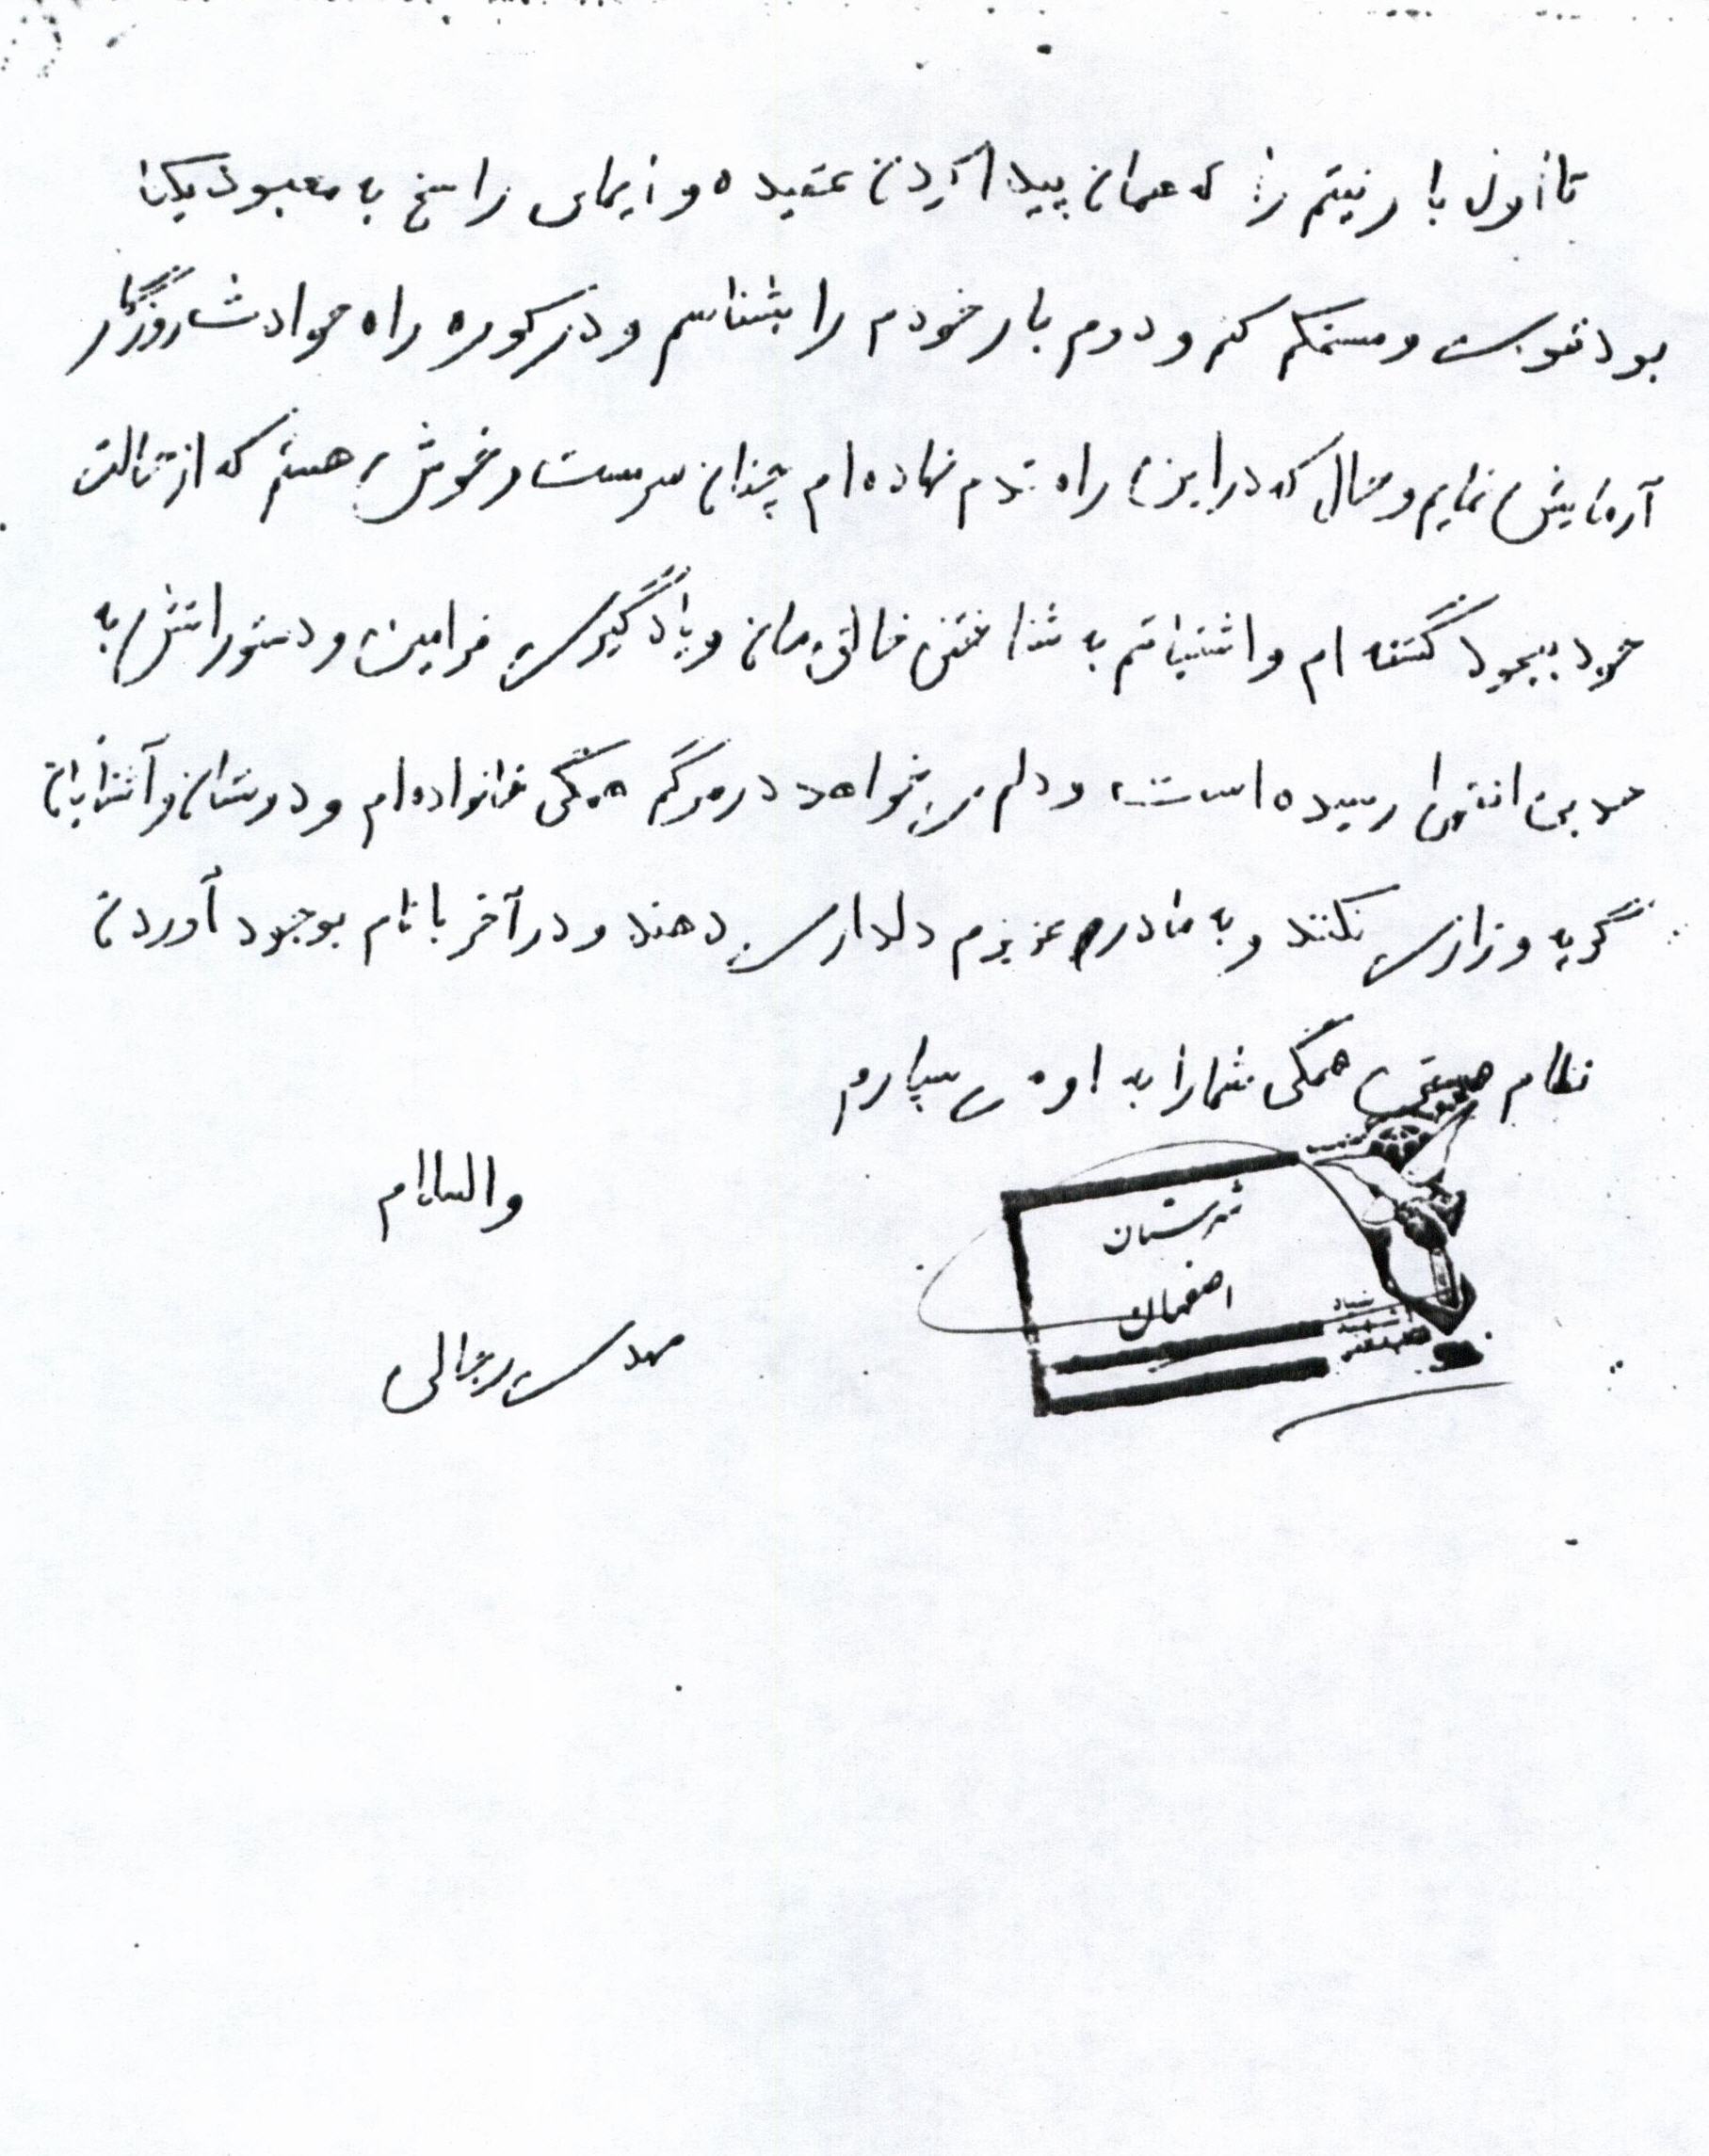 تا اول بار نیتم را که همان پیدا کردن عقیده و ایمانی راسخ به معبود یکتا
بود تقویت و مستحکم کنم و دوم بار خودم را بشناسم و در کوره راه حوادث روزگار
آزمایش نمایم و حال که در این راه قدم نهاده ام چنان سرمست و خوش هستم که از حالت
خود بیخود گشته ام و اشتیاقم به شناختن خالق مان و یادگیری فرامین و دستوراتش به
حد بی انتها رسیده است و دلم می خواهد در مرگم همگی خانواده ام و دوستان و آشنایان
گریه و زاری نکنند و به مادر عزیزم دلداری دهند و در آخر با نام بوجود آوردن
نظام هستی همگی شما را به او می سپارم
والسلام
شهرستان
اصفهان
مهدی رجالی
بنیاد
شهید